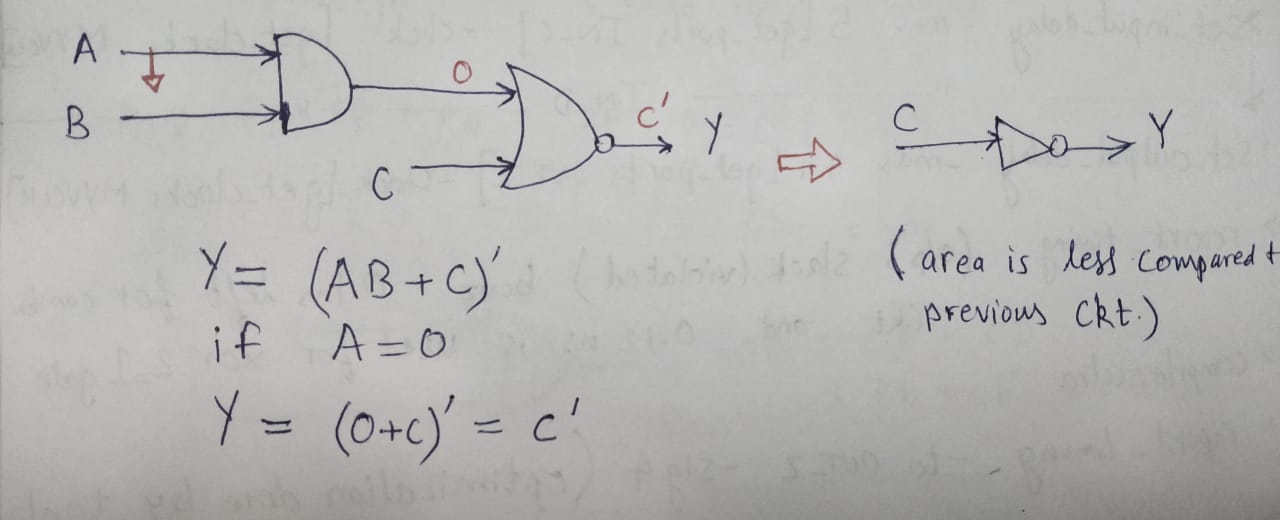 A
B
0
C
C'
Y
C
Y
Y = (AB + C)'
if A = 0
Y = (0+C)' = C'
(area is less compared t
previous ckt.)